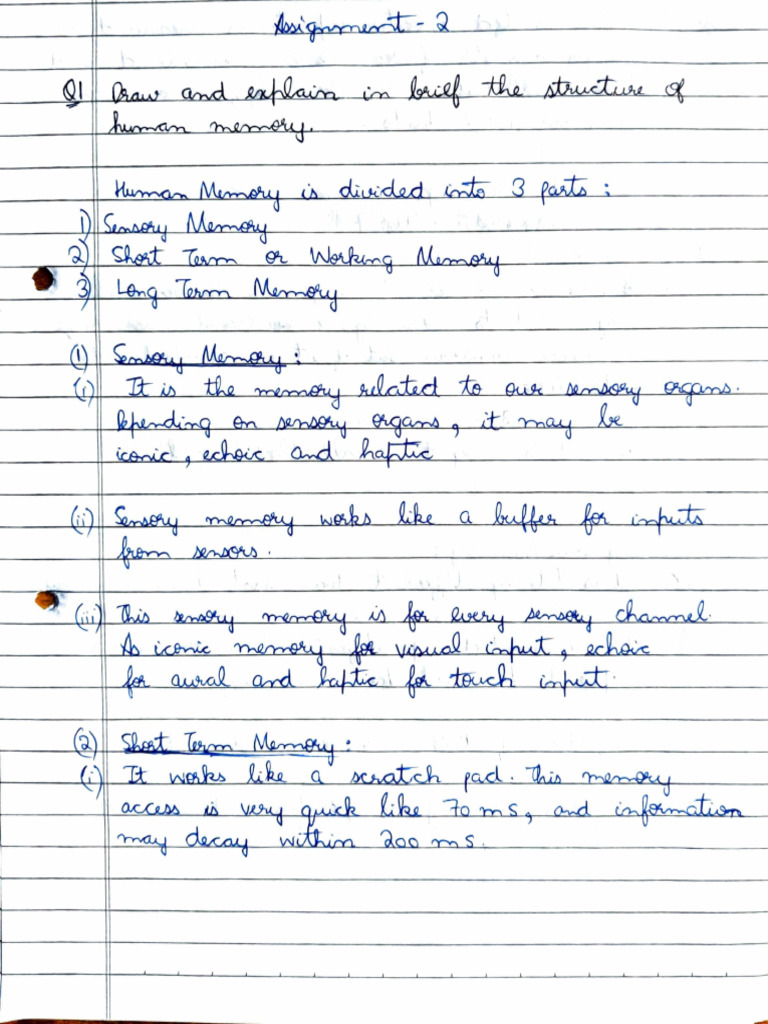 Assignment - 2
Q1 Draw and explain in brief the structure of
human memory.
Human Memory is divided into 3 parts :
1) Sensory Memory
2) Short Term or Working Memory
3) Long Term Memory
(1) Sensory Memory :
(i) It is the memory related to our sensory organs.
Depending on sensory organs, it may be
iconic, echoic and haptic
(ii) Sensory memory works like a buffer for inputs
from sensors.
(iii) This sensory memory is for every sensory channel.
As iconic memory for visual input, echoic
for aural and haptic for touch input.
(2) Short Term Memory :
(i) It works like a scratch pad. This memory
access is very quick like 70 ms, and information
may decay within 200 ms.